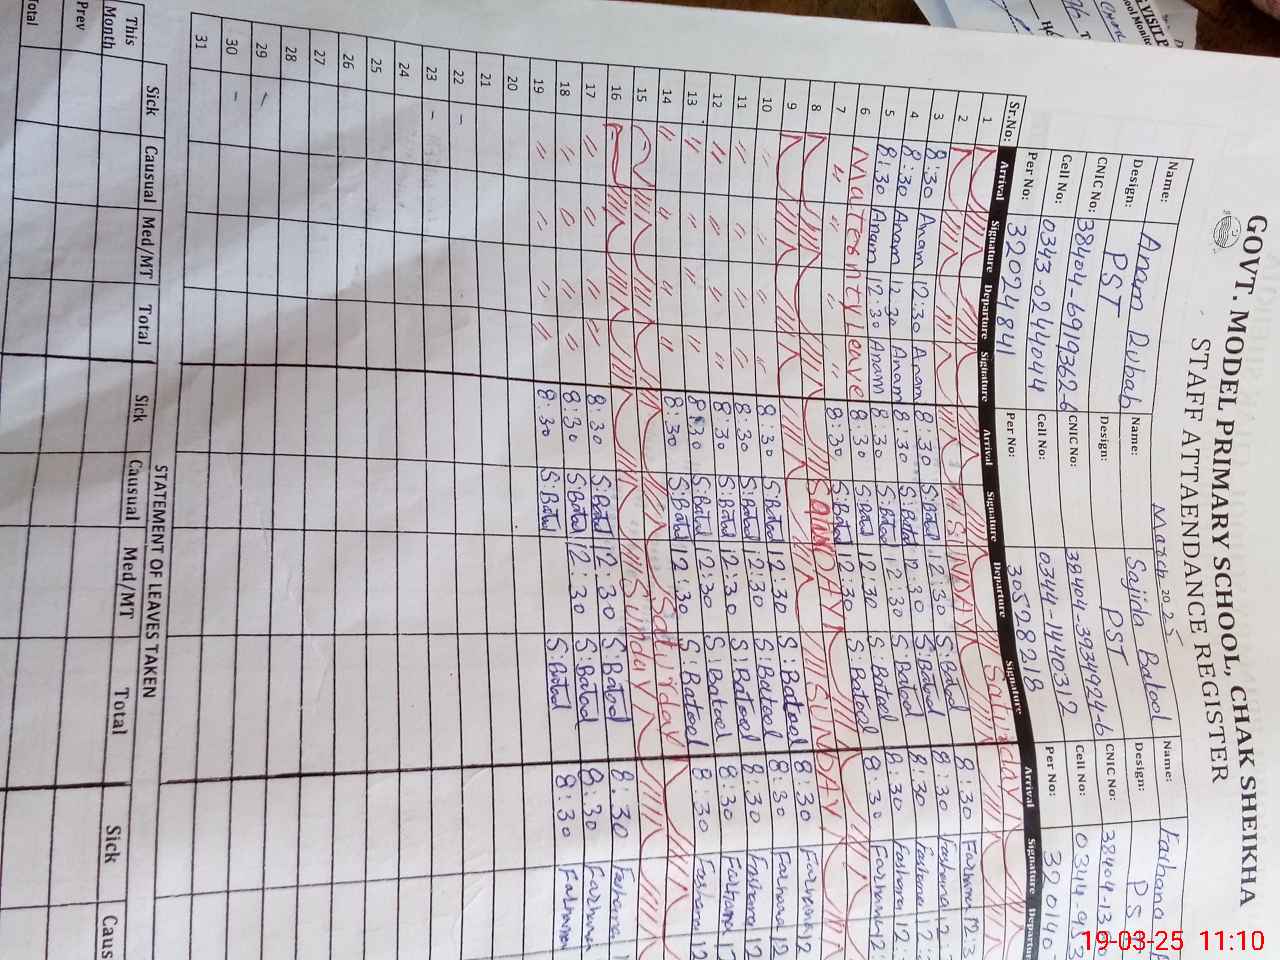 GOVT. MODEL PRIMARY SCHOOL, CHAK SHEIKHA
STAFF ATTAENDANCE REGISTER
March 2025
Name: Anam Rubab Name: Sajida Batool Name: Farhana
Design: PST Design: PST Design: PS
CNIC No: 38404-6919362-6 CNIC No: 38404-3934924-6 CNIC No: 38404-13
Cell No: 0343-0244044 Cell No: 0344-1440312 Cell No: 0344-9
Per No: 32024841 Per No: 30528218 Per No: 320140
Sr.No: Arrival Signature Departure Signature Arrival Signature Departure Signature Arrival Signature Departure
1 Saturday
2 SUNDAY
3 8:30 Anam 12:30 Anam 8:30 S:Batool 12:30 S:Batool 8:30 Farhana 12:3
4 8:30 Anam 12:30 Anam 8:30 S:Batool 12:30 S:Batool 8:30 Farhana 12:
5 8:30 Anam 12:30 Anam 8:30 S:Batool 12:30 S:Batool 8:30 Farhana 12:
6 Maternity Leave 8:30 S:Batool 12:30 S:Batool 8:30 Farhana 12:
7 " " " " 8:30 S:Batool 12:30
8
9 SUNDAY
10 " " " " 8:30 S:Batool 12:30 S:Batool 8:30 Farhana 12
11 " " " " 8:30 S:Batool 12:30 S:Batool 8:30 Farhana 12
12 " " " " 8:30 S:Batool 12:30 S:Batool 8:30 Farhana 12
13 " " " " 8:30 S:Batool 12:30 S:Batool 8:30 Farhana 12
14 " " " " 8:30 S:Batool 12:30 S:Batool 8:30 Farhana 12
15 Saturday
16 Sunday
17 " " " " 8:30 S:Batool 12:30 S:Batool 8:30 Farhana
18 " " " " 8:30 S:Batool 12:30 S:Batool 8:30 Farhana
19 " " " " 8:30 S:Batool S:Batool 8:30 Farhana
20
21
22 –
23 –
24
25
26
27
28
29
30 –
31
STATEMENT OF LEAVES TAKEN
Sick Causual Med/MT Total Sick Causual Med/MT Total Sick Caus
This Month
Prev
Total
VISIT P
19-03-25 11:10